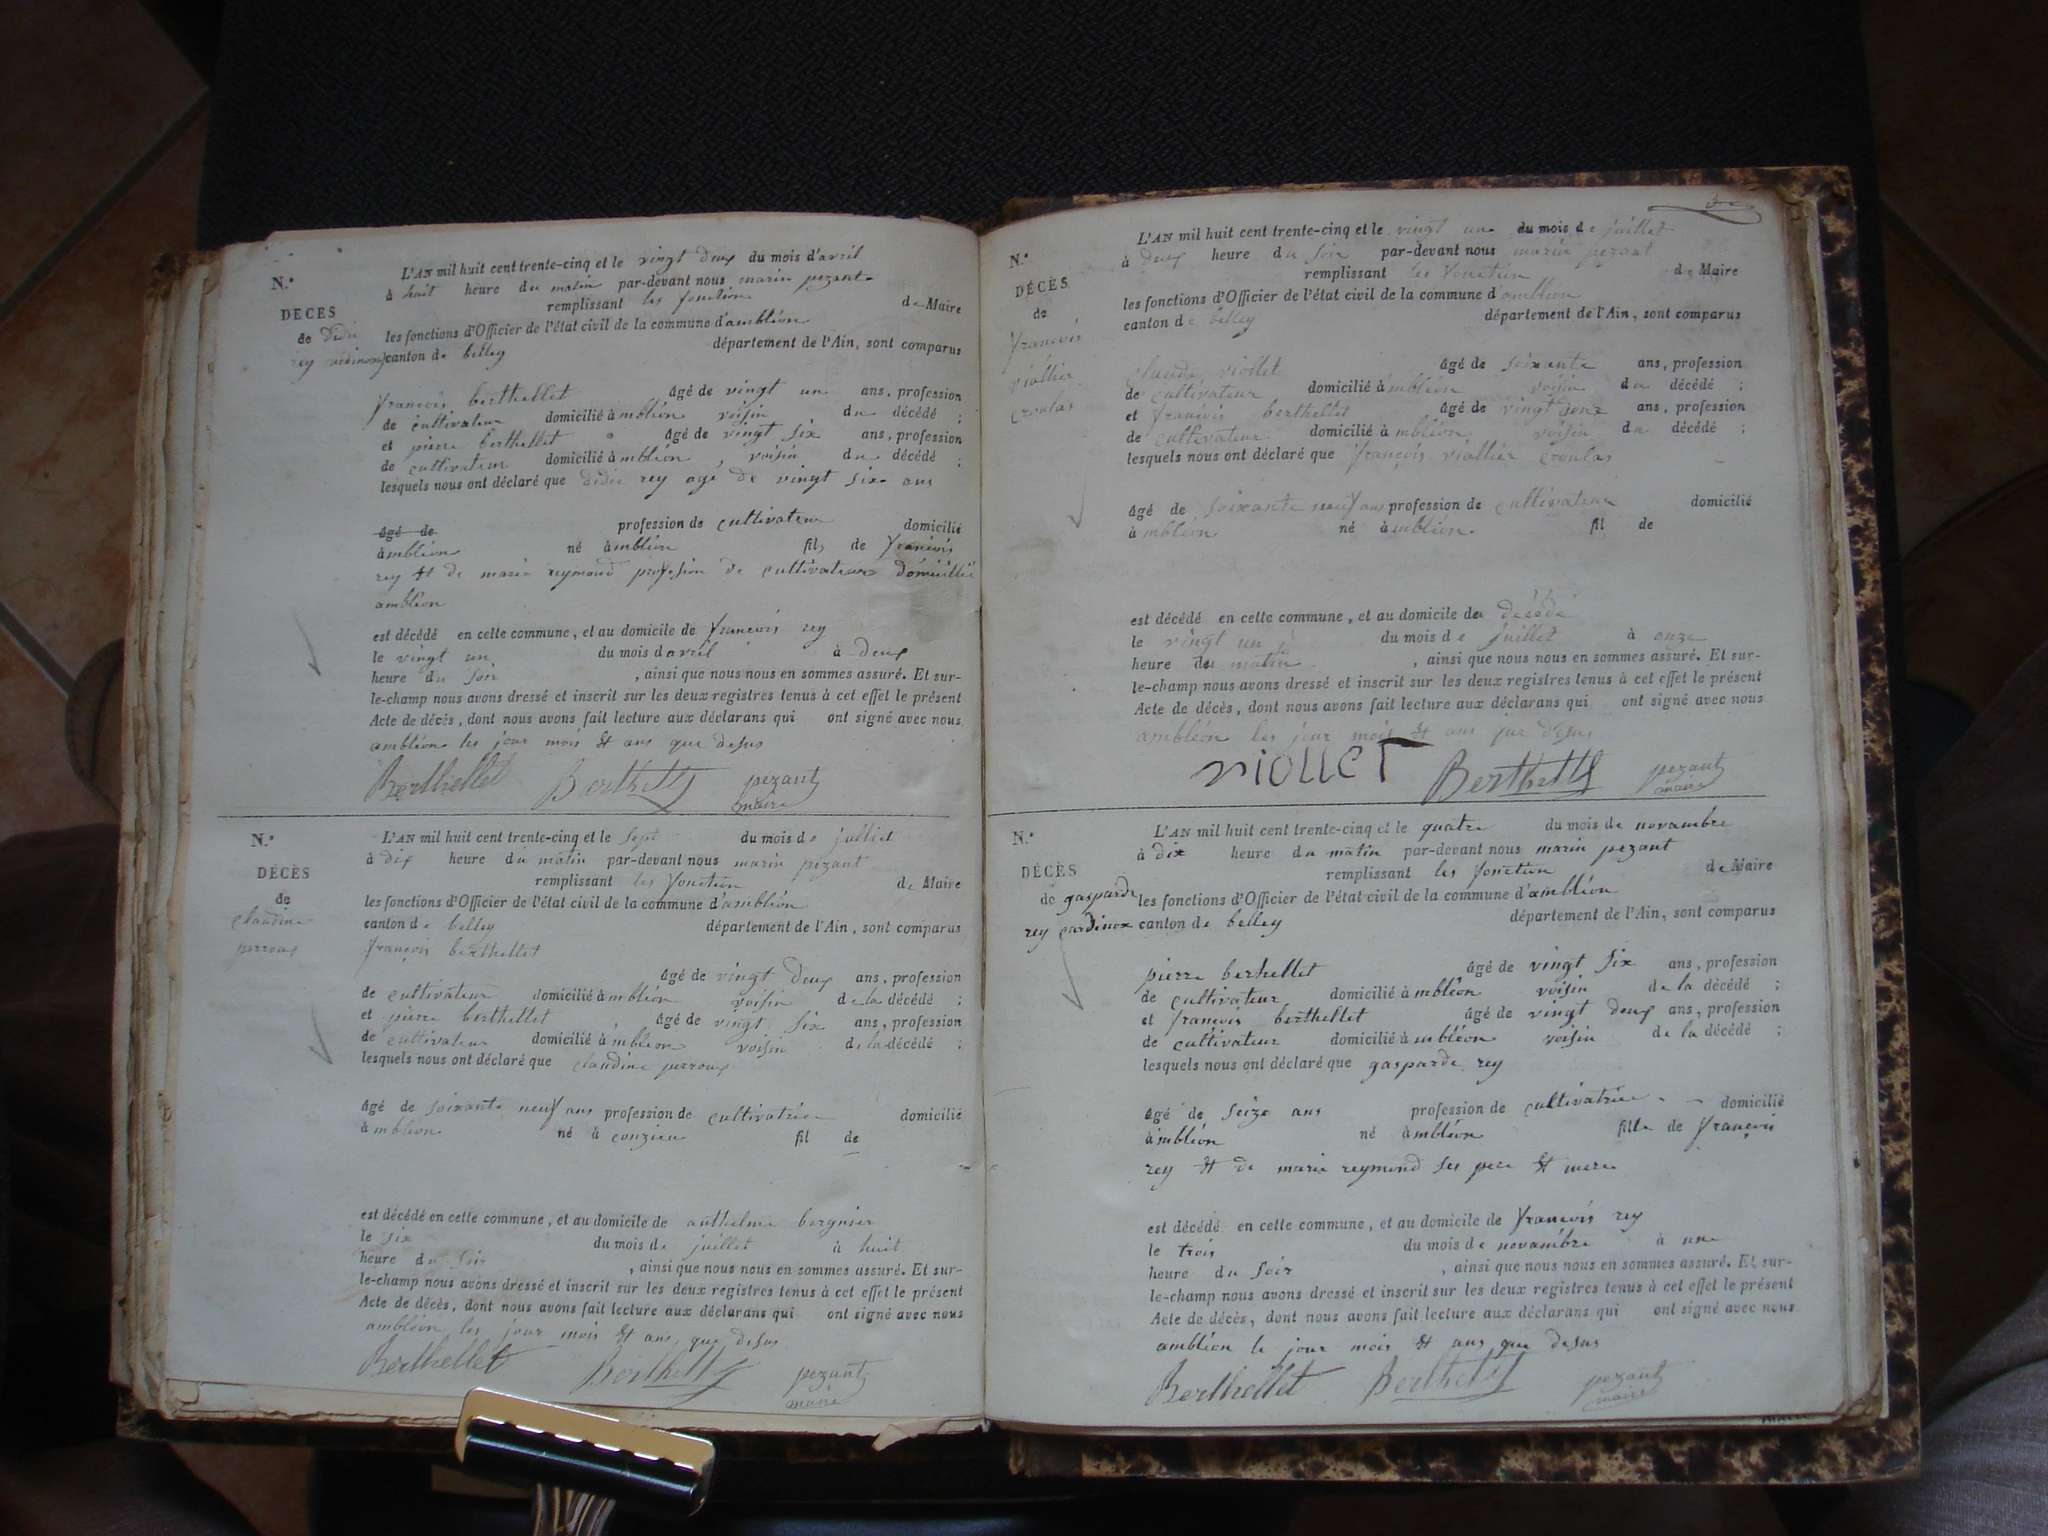 N.°
DÉCÈS
de Didié
rey cardinoux
L'AN mil huit cent trente-cinq et le vingt deux du mois d'avril
à huit heure du matin par-devant nous marin pezant
remplissant les fonction de Maire
les fonctions d'Officier de l'état civil de la commune d'ambléon
canton de belley département de l'Ain, sont comparus
françois berthellet âgé de vingt un ans, profession
de cultivateur domicilié à mbléon voisin du décédé ;
et pierre berthellet âgé de vingt six ans, profession
de cultivateur domicilié à mbléon, voisin du décédé ;
lesquels nous ont déclaré que didié rey agé de vingt six ans
âgé de profession de cultivateur domicilié
à mbléon né à mbléon fils de françois
rey et de marie reymond profesion de cultivateur domicillié
ambléon
est décédé en cette commune, et au domicile de françois rey
le vingt un du mois d avril à deux
heure du soir , ainsi que nous nous en sommes assuré. Et sur-
le-champ nous avons dressé et inscrit sur les deux registres tenus à cet effet le présent
Acte de décès, dont nous avons fait lecture aux déclarans qui ont signé avec nous
ambléon les jour mois et ans que desus
Berthellet Berthellet pezant
maire
N.°
DÉCÈS
de
claudine
perroux
L'AN mil huit cent trente-cinq et le sept du mois de julliet
à dix heure du matin par-devant nous marin pezant
remplissant les fonction de Maire
les fonctions d'Officier de l'état civil de la commune d'ambléon
canton de belley département de l'Ain, sont comparus
françois berthellet
âgé de vingt deux ans, profession
de cultivateur domicilié à mbléon voisin de la décédé ;
et pierre berthellet âgé de vingt six ans, profession
de cultivateur domicilié à mbléon voisin de la décédé ;
lesquels nous ont déclaré que claudine perroux
âgé de soixante neuf ans profession de cultivatrice domicilié
à mbléon né à conzieu fil de
est décédé en cette commune, et au domicile de anthelme borgnier
le six du mois de juillet à huit
heure du soir , ainsi que nous nous en sommes assuré. Et sur-
le-champ nous avons dressé et inscrit sur les deux registres tenus à cet effet le présent
Acte de décès, dont nous avons fait lecture aux déclarans qui ont signé avec nous
ambléon les jour mois et ans que desus
Berthellet Berthellet pezant
maire
N.°
DÉCÈS
de
françois
viollier
croulas
L'AN mil huit cent trente-cinq et le vingt une du mois de juillet
à deux heure du soir par-devant nous marin pezant
remplissant les fonction de Maire
les fonctions d'Officier de l'état civil de la commune d'ambléon
canton de belley département de l'Ain, sont comparus
claude viollet âgé de soixante ans, profession
de cultivateur domicilié à mbléon voisin du décédé ;
et françois berthellet âgé de vingt deux ans, profession
de cultivateur domicilié à mbléon voisin du décédé ;
lesquels nous ont déclaré que françois viollier croulas
âgé de soixante neuf ans profession de cultivateur domicilié
à mbléon né à mbléon fil de
est décédé en cette commune, et au domicile du décédé
le vingt un du mois de juillet à onze
heure du matin , ainsi que nous nous en sommes assuré. Et sur-
le-champ nous avons dressé et inscrit sur les deux registres tenus à cet effet le présent
Acte de décès, dont nous avons fait lecture aux déclarans qui ont signé avec nous
ambléon les jour mois et ans que desus
viollet Berthellet pezant
maire
N.°
DÉCÈS
de gasparde
rey cardinox
L'AN mil huit cent trente-cinq et le quatre du mois de novambre
à dix heure du matin par-devant nous marin pezant
remplissant les fonction de Maire
les fonctions d'Officier de l'état civil de la commune d'ambléon
canton de belley département de l'Ain, sont comparus
pierre berhellet âgé de vingt six ans, profession
de cultivateur domicilié à mbléon voisin de la décédé ;
et françois berthellet âgé de vingt deux ans, profession
de cultivateur domicilié à mbléon voisin de la décédé ;
lesquels nous ont déclaré que gasparde rey
âgé de seize ans profession de cultivatrice domicilié
à mbléon né à mbléon fille de françois
rey et de marie reymond ses pere et mere
est décédé en cette commune, et au domicile de françois rey
le trois du mois de novambre à une
heure du soir , ainsi que nous nous en sommes assuré. Et sur-
le-champ nous avons dressé et inscrit sur les deux registres tenus à cet effet le présent
Acte de décès, dont nous avons fait lecture aux déclarans qui ont signé avec nous
ambléon le jour mois et ans que desus
Berthellet Berthellet pezant
maire